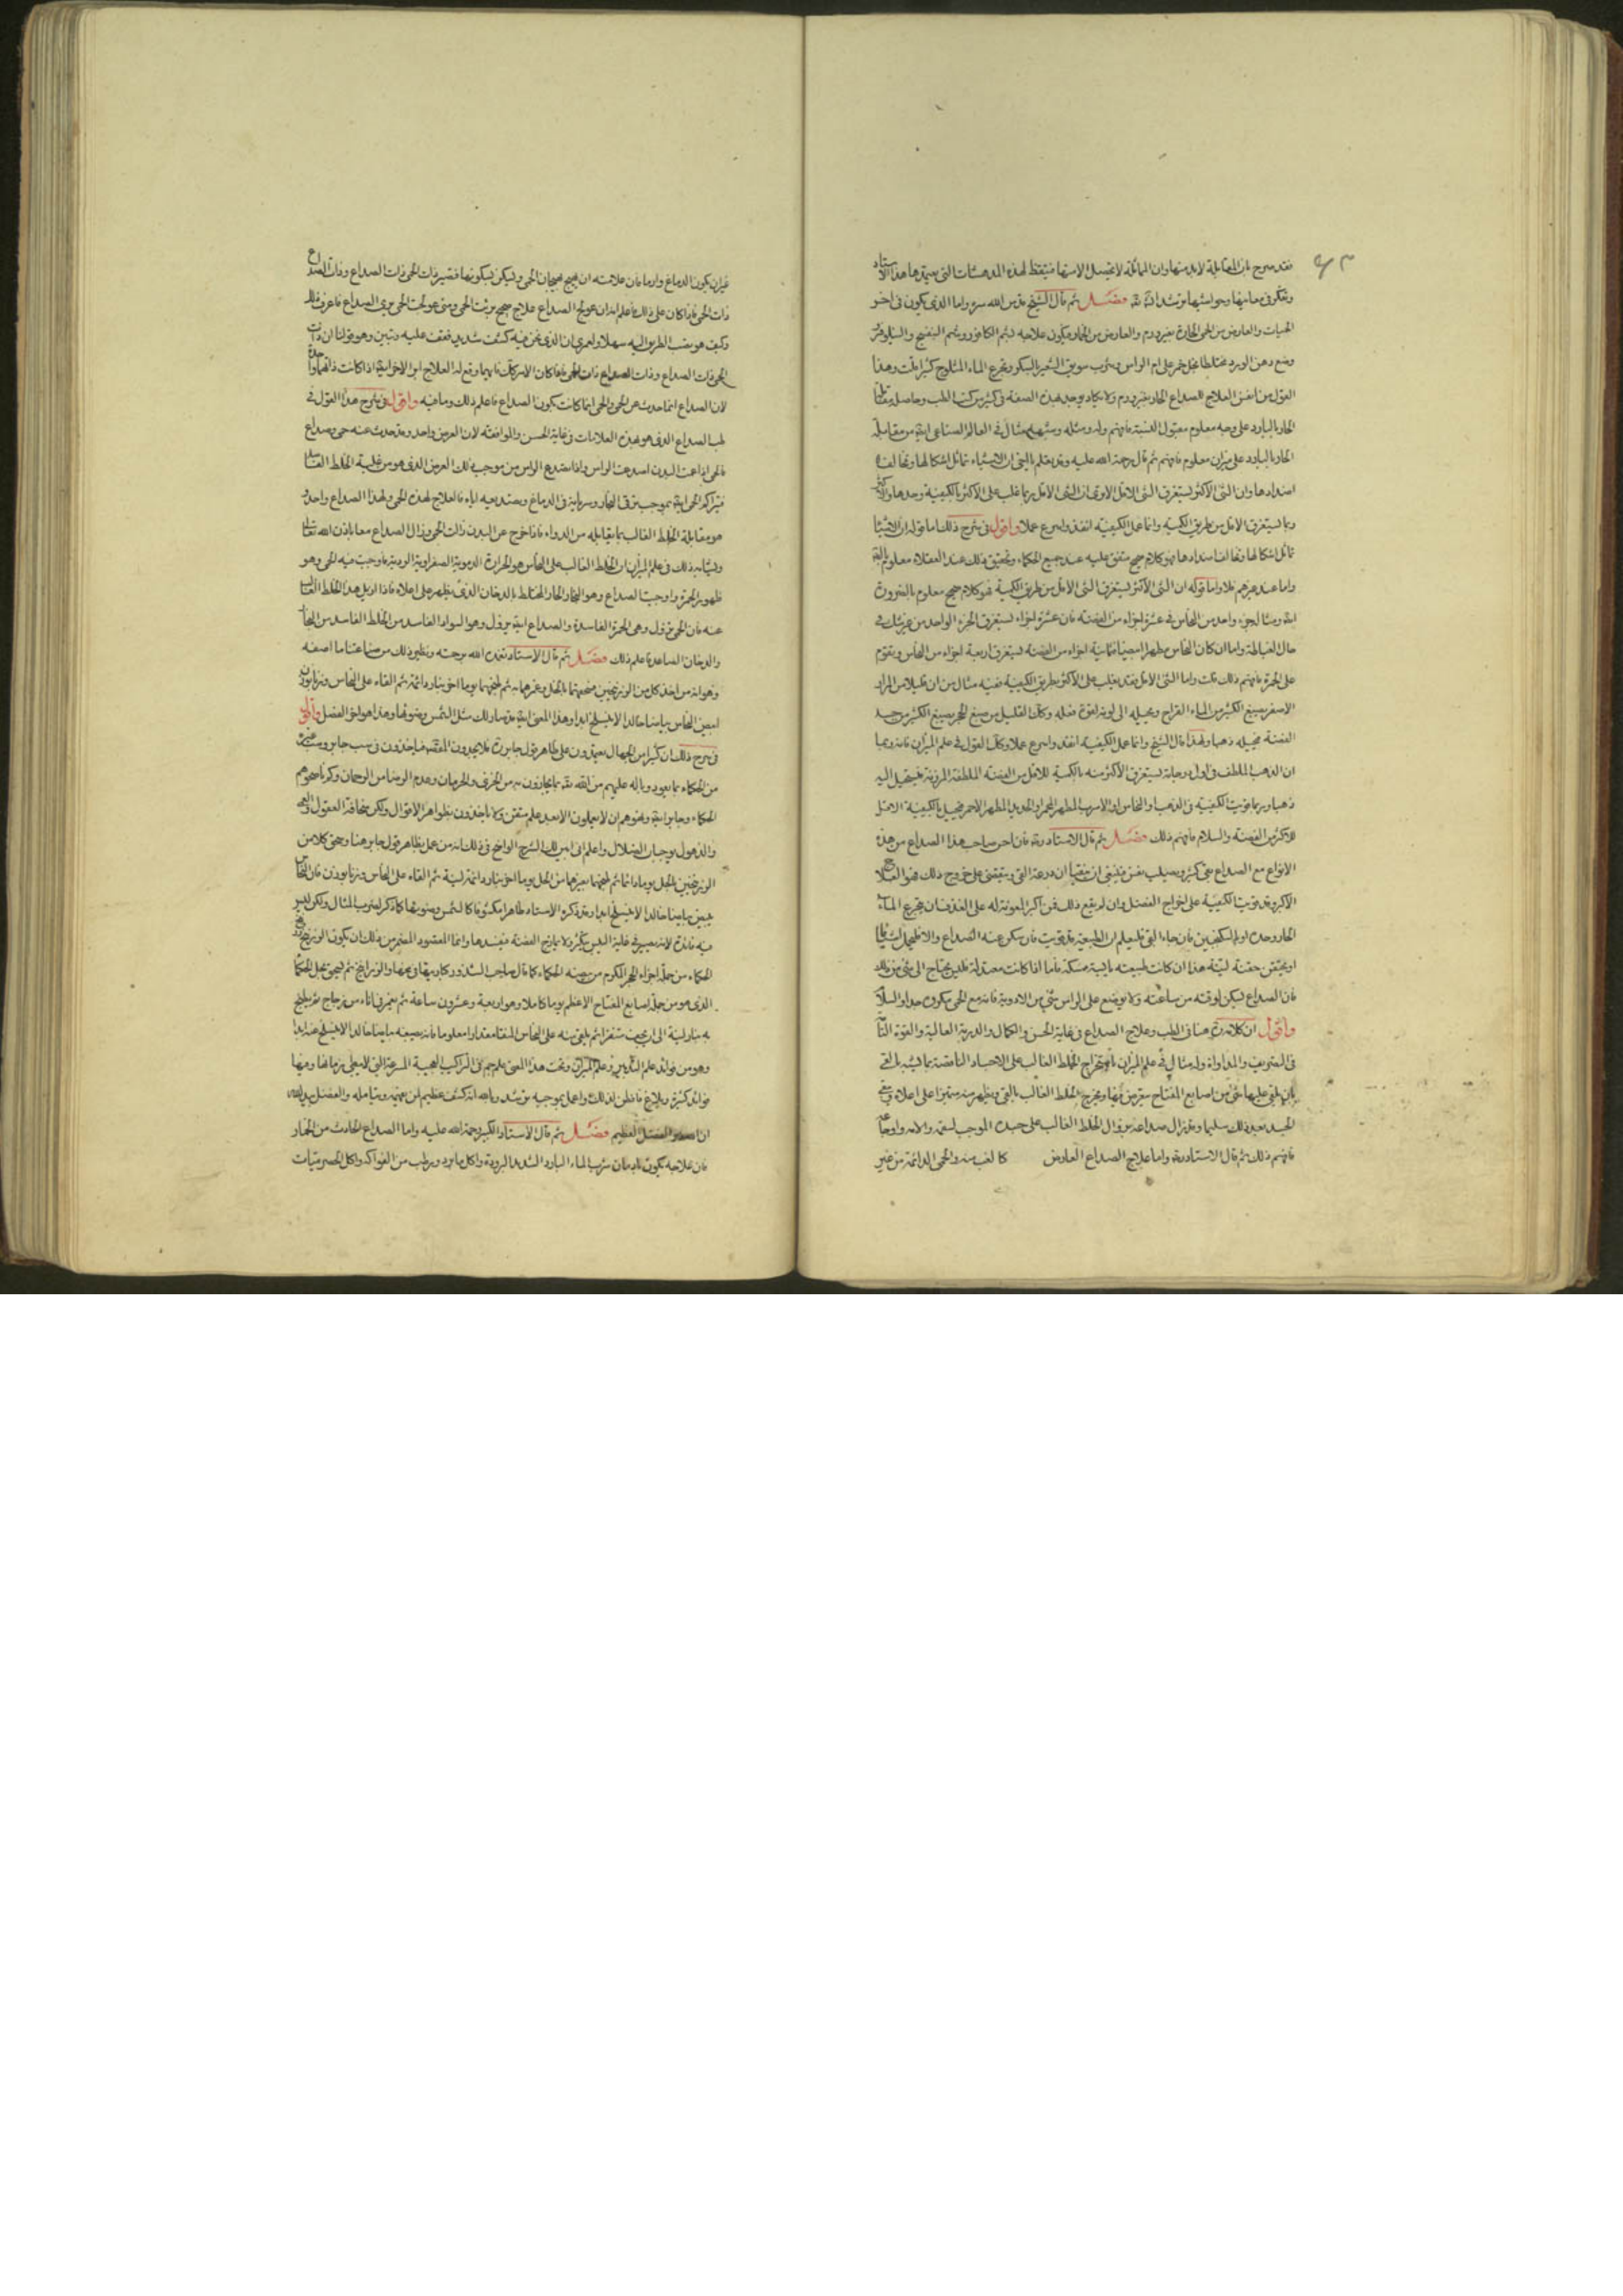 فقد صرح بان المقابلة لابد منها وان المماثلة لا يحصل الا بها فتيقظ لهذه المدهشات التي يعتمدها هذا الاستاد
وتفكر في معانيها وحواشيها ترشد ان شاء الله تعالى فصل ثم قال الشيخ قدس الله سره واما الذي يكون في اخر
الحميات والعارض من الحمى الحارة بغير ورم والعارض من الخمار فيكون علاجه بشم الكافور وشم البنفسج والنيلوفر
وضع دهن الورد مختلطا بخل خمر على ام الراس وشرب سويق الشعير بالسكر وتجرع الماء المثلوج كثيرا قلت وهذا
القول من نفس العلاج للصداع الحار بغير ورم ولا يكاد يوجد بهذه الصفة في كثير من كتب الطب وحاصله مقابلة
الحار بالبارد على وجه معلوم مقبول النسبة فافهم وله مثله وشبهه مثال في العالم الصناعي ايضا من مقابلة
الحار بالبارد على ميزان معلوم فافهم ثم قال رحمة الله عليه وقد يعلم باليقين ان الاشياء تماثل اشكالها وتخالف
اضدادها وان الشي الاكثر يستغرق الشي الاقل الا ترى ان الشي الاقل ربما غلب على الاكثر بالكيفية وحدها والاكثر
ربما يستغرق الاقل من طريق الكمية وانما عمل الكيفية انفذ واسرع عملا واقول في شرح ذلك اما قوله ان الاشياء
تماثل اشكالها وتخالف اضدادها فهو كلام صحيح متفق عليه عند جميع الحكماء وتحقيق ذلك عند العقلاء معلوم
واما عند غيرهم فلا واما قوله ان الشي الاكثر يستغرق الشي الاقل من طريق الكمية فهو كلام صحيح معلوم بالضرورة
ايضا ومثاله جزء واحد من النحاس في عشرة اجزاء من الفضة فان عشرة اجزاء تستغرق الجزء الواحد من غير شك في
حال الغباطة واما ان كان النحاس مطهرا مبيضا فثمانية اجزاء من الفضة تستغرق اربعة اجزاء من النحاس وتقوم
على الحمرة فافهم ذلك قلت واما الشي الاقل فقد يغلب على الاكثر بطريق الكيفية ففيه مثال من ان قليلا من المرار
الاصفر يصبغ الكثير من الماء القراح ويحيله الى لونه لقوة فعله وكذلك القليل من صبغ الحجر يصبغ الكثير من جسد
الفضة فيحيله ذهبا ولهذا قال الشيخ وانما عمل الكيفية انفذ واسرع عملا وكذلك القول في علم الميزان فانه ربما
ان الذهب الملطف في اول درجاته يستغرق الاكثر منه بالكمية للاقل من الفضة الملطفة المرزنة فيستحيل اليه
ذهبا وربما قويت الكيفية في الذهب والنحاس او الاسرب المطهر المحمر والحديد المطهر الاحمر فيحيل بالكيفية الاقل
للاكثر من الفضة والسلام فافهم ذلك فصل ثم قال الاستاد فان احس صاحب هذا الصداع من هذه
الانواع مع الصداع بقيء كثير وبصيلب نفس فينبغي ان يتقيا
الاكبر وقد قويت الكيفية على اخراج الفضل وان لم يقع ذلك فمن اكبر المعونة له على القذف ان يتجرع الماء
الحار وحده او بالسكنجبين فان جاء القي فليعلم ان الطبيعة قد قويت فان سكن عنه الصداع والا
او يحتقن حقنة لينة هذا ان كانت طبيعته يابسة مسكة فاما اذا كانت معتدلة فليس يحتاج الى شي من ذلك
فان الصداع يسكن لوقته من ساعته ولا يوضع على الراس شي من الادوية فانه مع الحمى يكون جدا والسلام
واقول ان كلامه هنا في الطب وعلاج الصداع في غاية الحسن والكمال والدربة العالية والقوة التامة
في التعريف والمداواة وله مثال في علم الميزان باستخراج الخلط الغالب على الاجساد الناقصة بما يشبه بالقي
بان يلقى عليها شي من اصابع المفتاح ويخرج الخلط الغالب بالقي ويظهر منه متميزا على اعلاه وبقي
الجسد بعد ذلك سليما وقد زال صداعه بزوال الخلط الغالب على جسده الموجب لسقمه والامه واوجاعه
فافهم ذلك ثم قال الاستاد واما علاج الصداع العارض كالغب منه والحمى الدائمة من غير
غير ان يكون الدماغ وارما فان علامته ان يهيج بهيجان الحمى ويسكن بسكونها فتصير ذات الحمى ذات الصداع وذات الصداع
ذات الحمى فاذا كان على ذلك فاعلم انه ان عولج الصداع علاج صحيح برئت الحمى ومتى عولجت الحمى برئ الصداع فاعرف ذلك
وكيف هو تنب الطريق اليه سهلا ولعمري ان الذي نحن فيه كشف شديد فقف عليه وتبين وهو قولنا ان ذات
الحمى ذات الصداع وذات الصداع ذات الحمى فاذا كان الامر كذلك فايهما وقع له العلاج ابرا الاخر
لان الصداع انما حدث عن الحمى والحمى انما كانت بكون الصداع فاعلم ذلك وما فيه واقول في شرح هذا القول في
طب الصداع الذي هو بهذه العلامات في غاية الحسن والموافقة لان العرض واحد وقد حدث عنه حمى وصداع
فالحمى اذا عمت البدن اصدعت الراس واذا استدع الراس من موجب ذلك العرض الذي هو من غلبة الخلط الفاسد
فيتراكم الحمى ايضا بموجب ترقي البخار وسريانه في الدماغ وصدعه اياه فالعلاج لهذه الحمى ولهذا الصداع واحد
هو مقابلة الخلط الغالب بما يقابله من الدواء فاذا خرج عن البدن ذات الحمى وزال الصداع معا باذن الله تعالى
وبيانه ذلك في علم الميزان ان الخلط الغالب على النحاس هو الحرارة الدموية الصفراوية الردية فاوجبت فيه الحمى وهو
ظهور الحمرة واوجبت الصداع وهو البخار الحار المختلط بالدخان الذي يظهر على اعلاه فاذا ازيل هذا الخلط الغالب
عنه فان الحمى تزول وهي الحمرة الفاسدة والصداع ايضا يزول وهو السواد الفاسد من الخلط الفاسد من البخار
والدخان الصاعد فاعلم ذلك فصل ثم قال الاستاد تغمده الله برحمته ونظير ذلك من صناعتنا ما اصفه
وهو انه من اخذ كل من الزرنيخين فنعمهما بالخل وغمرهما به ثم طبخهما يوما اخر بنار دائمة ثم القاه على النحاس وزنا بوزن
ابيض النحاس بياضا خالدا لا ينسلخ ابدا وهذا المعنى ايضا قد صار لك مثل الشمس وضوئها وهذا هو الحق الفصل واقول
في شرح ذلك ان كثيرا من الجهال يعتمدون على ظاهر قول جابر فلا يجدون المقصد فياخذون في سب جابر وسب غيره
من الحكماء بما يعود وباله عليهم من الله تعالى بما يجازون به من الخزي والحرمان وعدم الرضا من الرحمان وكم ناصحوهم
الحكماء وجابر ايضا ونصوهم ان لا يعملون الا بعد علم متقن ولا ياخذون بظواهر الاقوال ولكن سخافة العقول والعمى
والذهول يوجبان الضلال واعلم اني ابين لك الشرح الواضح في ذلك انه من عمل بظاهر قول جابر هنا وسحق كلا من
الزرنيخين بالخل يوما دائما ثم طبخهما بغيرهما من الخل يوما اخر بنار دائمة لينة ثم القاه على النحاس وزنا بوزن فان النحاس
يبيض بياضا خالدا لا ينسلخ ابدا وقد ذكره الاستاد ظاهرا مكشوفا كالشمس وضوئها كما ذكر لضرب المثال ولكن ليس
فيه فائدة لانه يصير في غاية اليبس يتكسر ولا يمازج الفضة فيفسدها وانما المقصود المضمر من ذلك ان يكون الزرنيخ
الحكماء من جملة اجزاء الحجر المكرم من صنعة الحكماء كما قال صاحب الشذور وكباريتها في نحسها والزرانيخ ثم يسحق بخل الحكماء
الذي هو من جملة اصابع المفتاح الاعظم يوما كاملا وهو اربعة وعشرون ساعة ثم يغمر في اناء من زجاج ثم يطبخ
به بنار لينة الى ان يجف ثم يلقى منه على النحاس المنقا مقدارا معلوما فانه يصبغه بياضا خالدا لا ينسلخ عنه ابدا
وهو من فوائد علم التدبير وعلم الميزان وتحت هذا المعنى علم جم في التراكيب العجيبة السرعة التي لا يبطي زمانها وفيها
فوائد كثيرة وبلاغ فافطن لذلك واعمل بموجبه ترشد وبالله انه كشف عظيم لمن فهمه وتامله والفضل بيد الله
الفضل العظيم فصل ثم قال الاستاد الكبير رحمة الله عليه واما الصداع الحادث من الخمار
فان علاجه يكون بادمان شرب الماء البارد الشديد البرودة واكل ما برد ورطب من الفواكه واكل الحصرميات